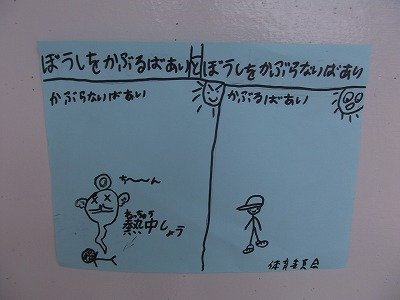 ぼうしをかぶるばあいとぼうしをかぶらないばあい
かぶらないばあい
かぶるばあい
ち〜〜ん
ねっちゅう
熱中しょう
体育委員会